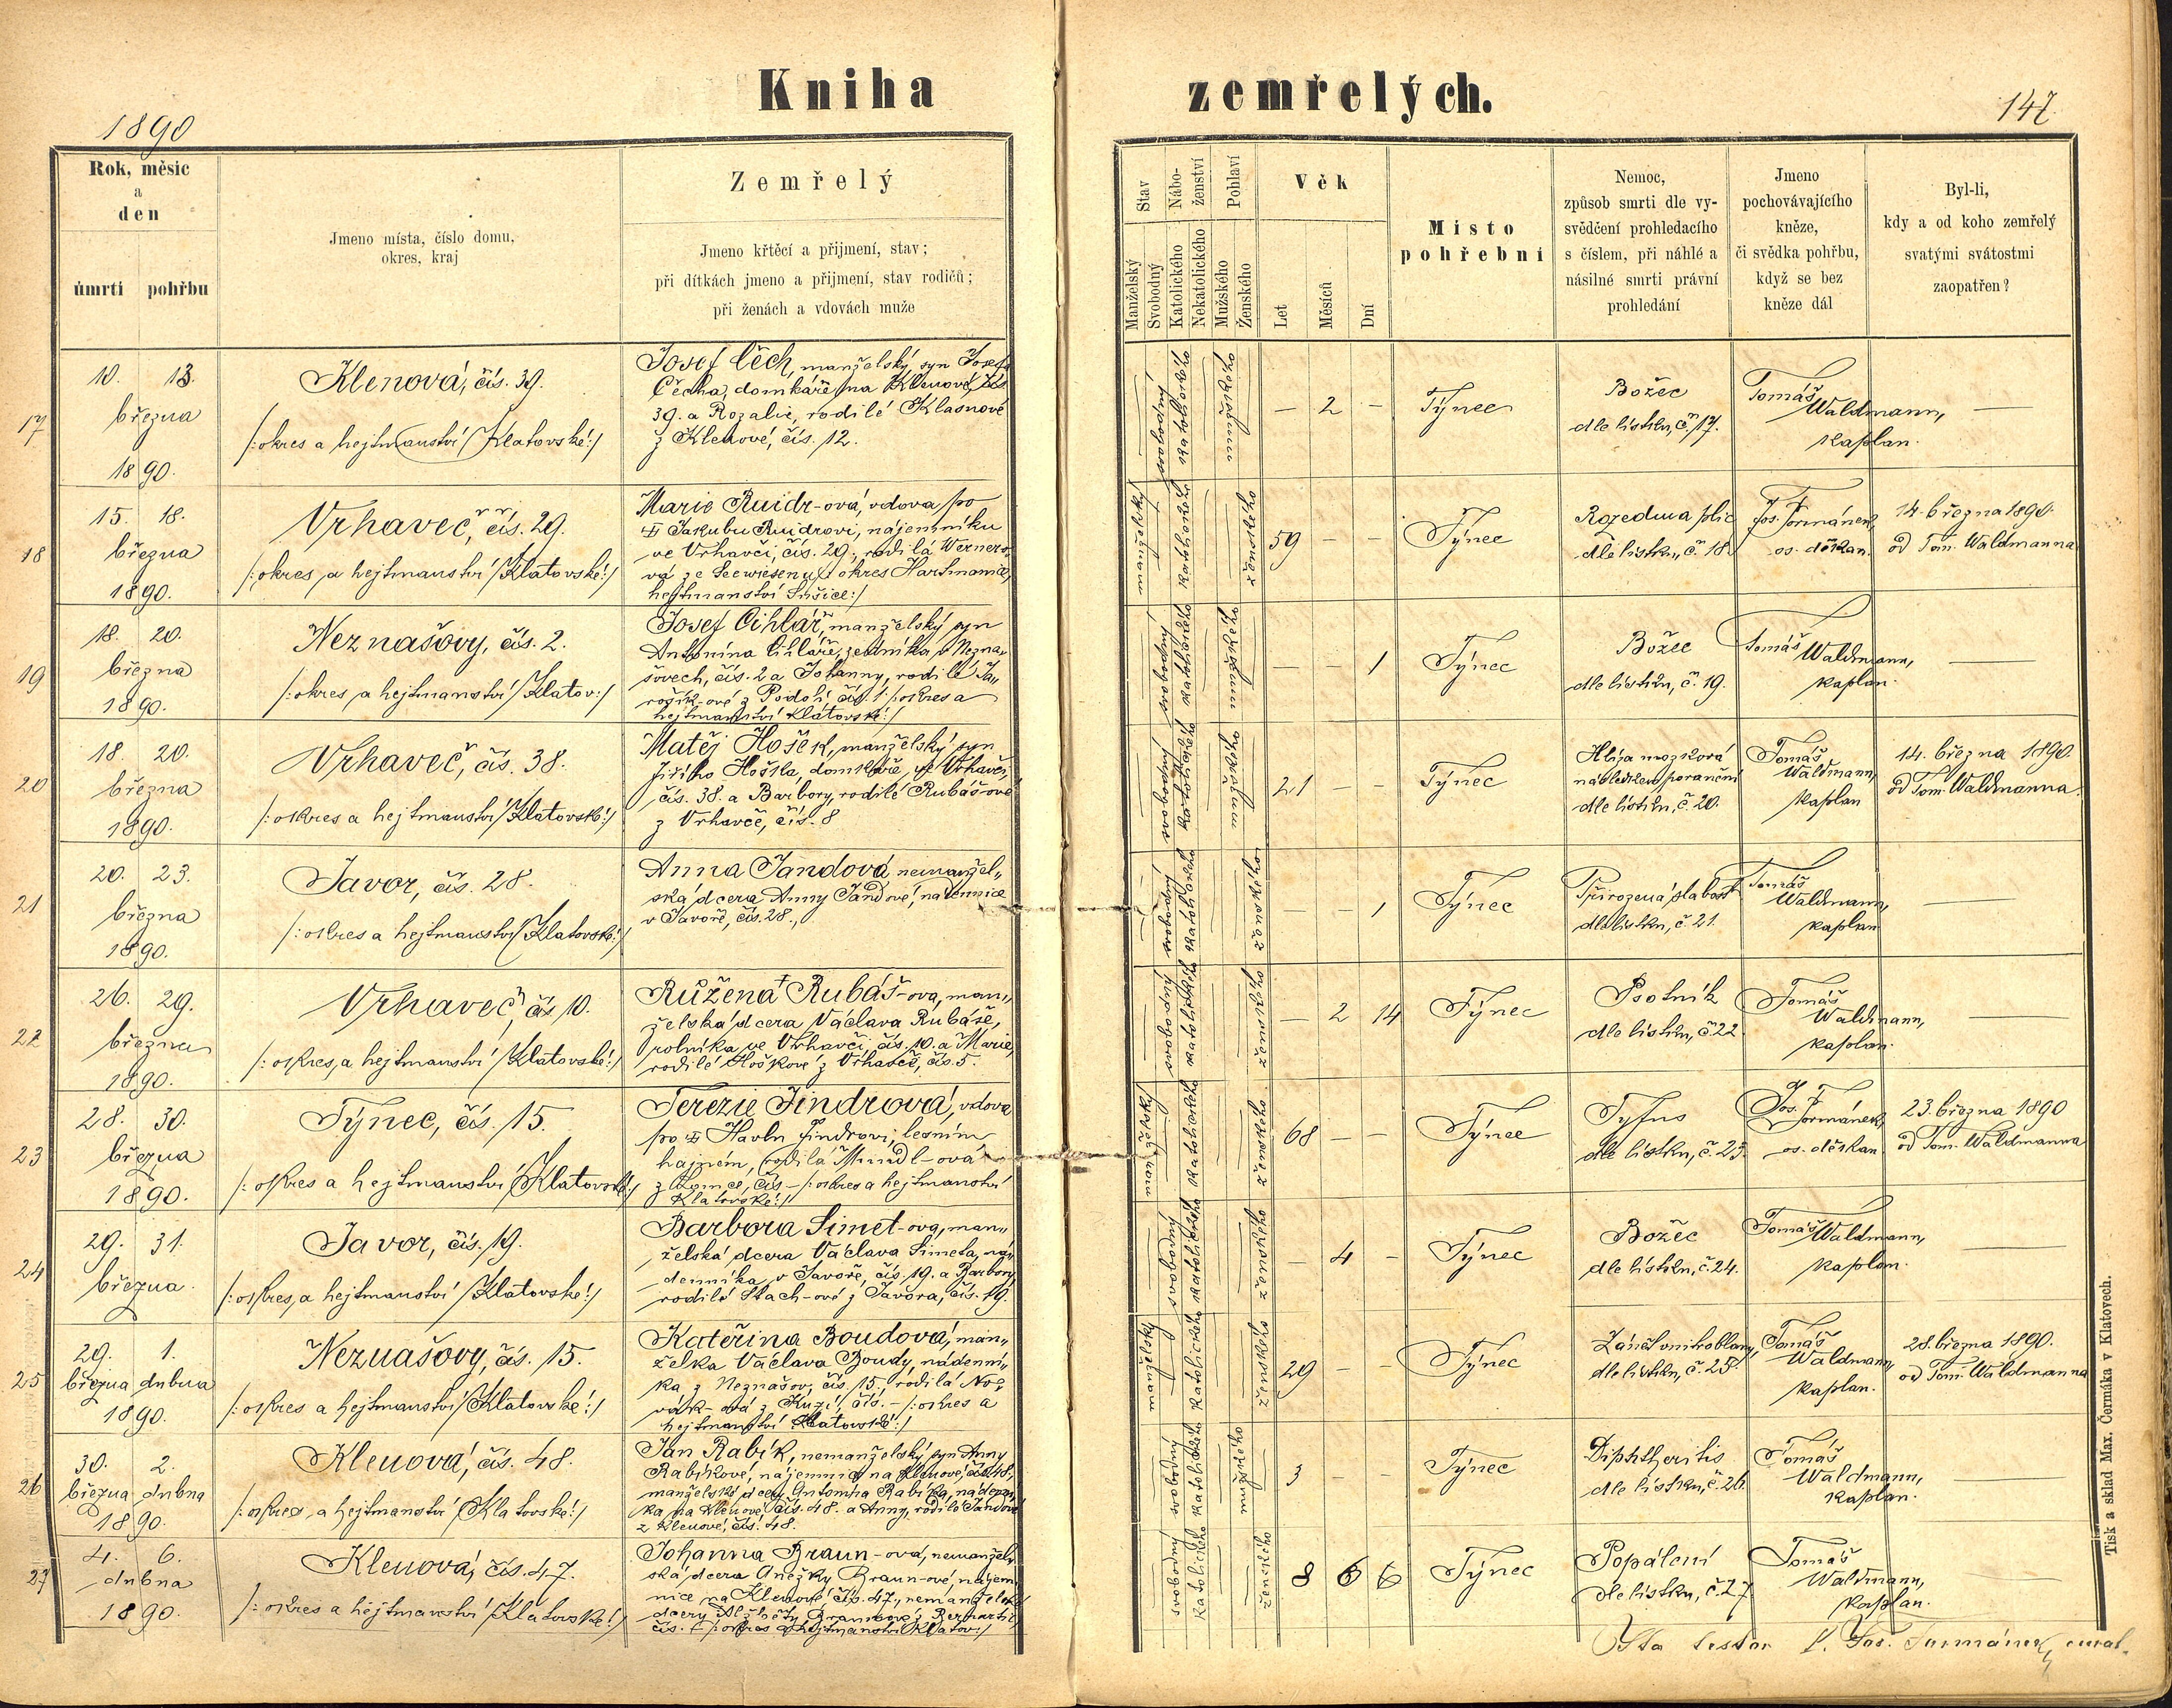 Kniha zemřelých.
1890
147
Rok, měsíc
a
den
úmrtí pohřbu
Jmeno místa, číslo domu,
okres, kraj
Zemřelý
Jmeno křtěcí a přijmení, stav;
při dítkách jmeno a přijmení, stav rodičů;
při ženách a vdovách muže
Stav
Manželský
Svobodný
Nábo-
ženství
Katolického
Nekatolického
Pohlaví
Mužského
Ženského
Věk
Let
Měsíců
Dní
Místo
pohřební
Nemoc,
způsob smrti dle vy-
svědčení prohledacího
s číslem, při náhlé a
násilné smrti právní
prohledání
Jmeno
pochovávajícího
kněze,
či svědka pohřbu,
když se bez
kněze dál
Byl-li,
kdy a od koho zemřelý
svatými svátostmi
zaopatřen?
17
10. 13.
března
1890.
Klenová, čís. 39.
/:okres a hejtmanství Klatovské:/
Josef Čech, manželský syn Josefa
Čecha, domkáře na Klenové, čís.
39. a Rozalie, rodilé Klasnové
z Klenové, čís. 12.
svobodný
katolického
mužského
— 2 —
Týnec
Božec
dle lístku, č. 17.
Tomáš
Waldmann,
kaplan.
—
18
15. 18.
března
1890.
Vrhaveč, čís. 29.
/:okres a hejtmanství Klatovské:/
Marie Ruidr-ová, vdova po
Jakubu Ruidrovi, nájemníku
ve Vrhavči, čís. 29., rodilá Wernero-
vá ze Seewiesenu /: okres Hartmanice,
hejtmanství Sušice:/
manželský
katolického
ženského
59 — —
Týnec
Rozedma plic
dle lístku, č. 18.
Jos. Formánek,
os. děkan.
14. března 1890.
od Tom. Waldmanna
19
18. 20.
března
1890.
Neznašovy, čís. 2.
/:okres a hejtmanství Klatov:/
Josef Cihlář, manželský syn
Antonína Cihláře, zedníka v Nezna-
šovech, čís. 2 a Johanny, rodilé Ja-
rošík-ové z Podolí, čís. 1 /:okres a
hejtmanství Klatovské:/
svobodný
katolického
mužského
— — 1
Týnec
Božec
dle lístku, č. 19.
Tomáš
Waldmann,
kaplan.
—
20
18. 20.
března
1890.
Vrhaveč, čís. 38.
/:okres a hejtmanství Klatovské:/
Matěj Hošek, manželský syn
Jiřího Hoška, domkáře, ve Vrhavči,
čís. 38. a Barbory, rodilé Rubáš-ové
z Vrhavče, čís. 8
svobodný
katolického
mužského
21 — —
Týnec
Hlíza mozková
následkem poranění
dle lístku, č. 20.
Tomáš
Waldmann,
kaplan
14. března 1890.
od Tom. Waldmanna.
21
20. 23.
března
1890.
Javor, čís. 28.
/:okres a hejtmanství Klatovské:/
Anna Jandová, nemanžel-
ská dcera Anny Jandové, nádennice
v Javoře, čís. 28.,
svobodný
katolického
ženského
— — 1
Týnec
Přirozená slabost
dle lístku, č. 21.
Tomáš
Waldmann,
kaplan
—
22
26. 29.
března
1890.
Vrhaveč, čís. 10.
/:okres, a hejtmanství Klatovské:/
Růžena Rubáš-ova, man-
želská dcera Václava Rubáše,
rolníka ve Vrhavči, čís. 10. a Marie,
rodilé Hoškové z Vrhavče, čís. 5.
svobodný
katolického
ženského
— 2 14
Týnec
Psotník
dle lístku, č. 22.
Tomáš
Waldmann,
kaplan.
—
23
28. 30.
března
1890.
Týnec, čís. 15.
/:okres a hejtmanství Klatovské:/
Terezie Jindrová, vdova
po Havlu Jindrovi, lesním
hajném, rodilá Mundl-ová
čís. — /:okres a hejtmanství
Klatovské:/
manželský
katolického
ženského
68 — —
Týnec
Tyfus
dle lístku, č. 23.
Jos. Formánek,
os. děkan.
23. března 1890
od Tom. Waldmanna
24
29. 31.
března.
Javor, čís. 19.
/:okres, a hejtmanství Klatovské:/
Barbora Simet-ova, man-
želská dcera Václava Simeta, ná-
denníka v Javoře, čís. 19. a Barbory,
rodilé Stach-ové z Javora, čís. 19.
svobodný
katolického
ženského
— 4 —
Týnec
Božec
dle lístku, č. 24.
Tomáš Waldmann,
kaplan.
—
25
29. 1.
března dubna
1890.
Neznašovy, čís. 15.
/:okres a hejtmanství Klatovské:/
Kateřina Boudová, man-
želka Václava Boudy, nádenní-
ka z Neznašov, čís. 15., rodilá No-
vák-ová z čís. — /:okres a
hejtmanství Klatovské:/
manželský
katolického
ženského
29 — —
Týnec
Zánět
dle lístku, č. 25.
Tomáš
Waldmann,
kaplan.
28. března 1890.
od Tom. Waldmanna
26
30. 2.
března dubna
1890.
Klenová, čís. 48.
/:okres, a hejtmanství Klatovské:/
Jan Rabík, nemanželský syn Anny
Rabíkové, nájemnice na Klenové, čís. 48,
manželské dcery Antonína Rabíka, nádenní-
ka na Klenové, čís. 48. a Anny, rodilé Jandové
z Klenové, čís. 48.
svobodný
katolického
mužského
3 — —
Týnec
Diphtheritis
dle lístku, č. 26.
Tomáš
Waldmann,
kaplan.
27
4. 6.
dubna
1890.
Klenová, čís. 47.
/:okres a hejtmanství Klatovské:/
Johanna Braun-ová, nemanžel-
ská dcera Anežky Braun-ové, nájem-
nice na Klenové, čís. 47., nemanželské
dcery Alžběty Braunové z
čís. /:okres a hejtmanství Klatov:/
svobodný
katolického
ženského
8 6 6
Týnec
Popálení
dle lístku, č. 27
Tomáš
Waldmann,
kaplan.
Ita testor P. Jos. Formánek, curat.
Tisk a sklad Max. Čermáka v Klatovech.